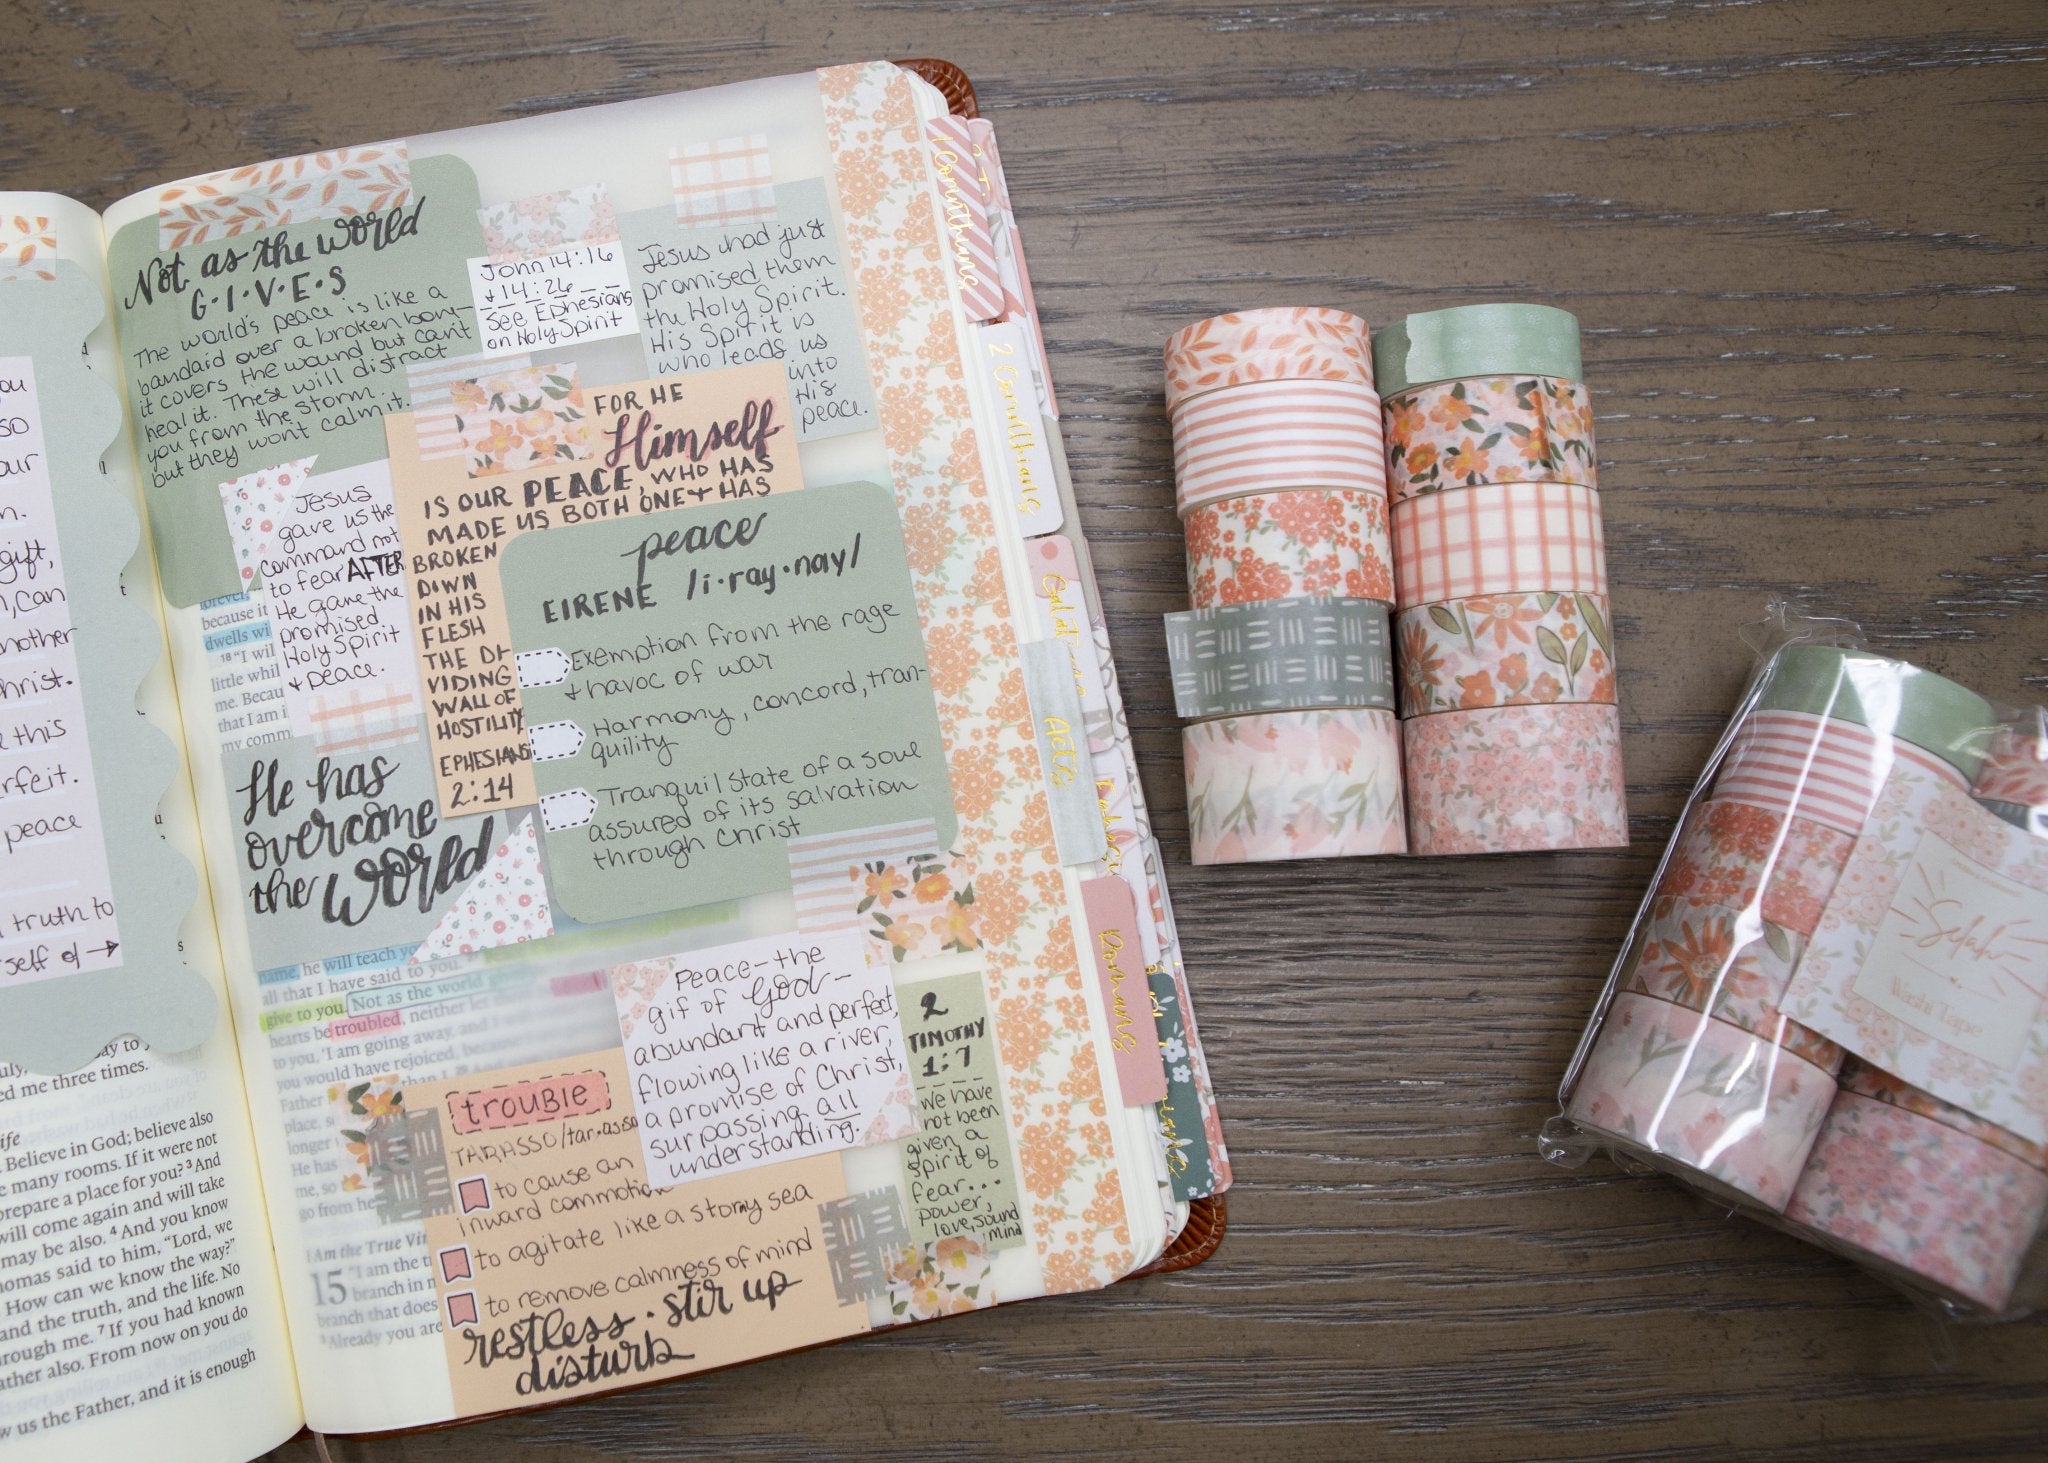 Not as the world
G·I·V·E·S
The world's peace is like a
bandaid over a broken bone—
it covers the wound but can't
heal it. These will distract
you from the storm
but they won't calm it.
John 14:16
+ 14:26
See Ephesians
on Holy Spirit
Jesus had just
promised them
the Holy Spirit.
His Spirit is
who leads us
into
His
peace.
FOR HE
Himself
IS OUR PEACE, WHO HAS
MADE US BOTH ONE + HAS
BROKEN
DOWN
IN HIS
FLESH
THE DI-
VIDING
WALL OF
HOSTILITY
EPHESIANS
2:14
Jesus
gave us the
command not
to fear AFTER
He gave the
promised
Holy Spirit
+ peace.
peace
EIRENE /i·ray·nay/
Exemption from the rage
+ havoc of war
Harmony, concord, tran-
quility
Tranquil state of a soul
assured of its salvation
through Christ
He has
overcome
the world
Peace—the
gift of God—
abundant and perfect,
flowing like a river,
a promise of Christ,
surpassing all
understanding.
2
TIMOTHY
1:7
we have
not been
given a
spirit of
fear...
power,
love, sound
mind
trouble
TARASSO/tar·as·so
to cause an
inward commotion
to agitate like a stormy sea
to remove calmness of mind
restless · stir up
disturb
forever,
because it
dwells wi
18 "I will
little while
me. Becau
that I am i
my comm
name, he will teach yo
all that I have said to you.
give to you. Not as the world
hearts be troubled, neither let
to you, 'I am going away, and I
you would have rejoiced,
than I.
Father
place, s
longer
He has
me, so
go from he
I Am the True Vin
15 "I am the t
branch in m
branch that does
Already you are
you
so
our
n.
gift,
n, can
nother
hrist.
e this
rfeit.
peace
truth to
self of →
ay to
uly,
ed me three times.
ife
Believe in God; believe also
e many rooms. If it were not
repare a place for you? 3 And
will come again and will take
may be also. 4 And you know
homas said to him, "Lord, we
How can we know the way?"
and the truth, and the life. No
rough me. 7 If you had known
ather also. From now on you do
w us the Father, and it is enough
1 Corinthians
2 Corinthians
Acts
Romans
Selah
Washi Tape